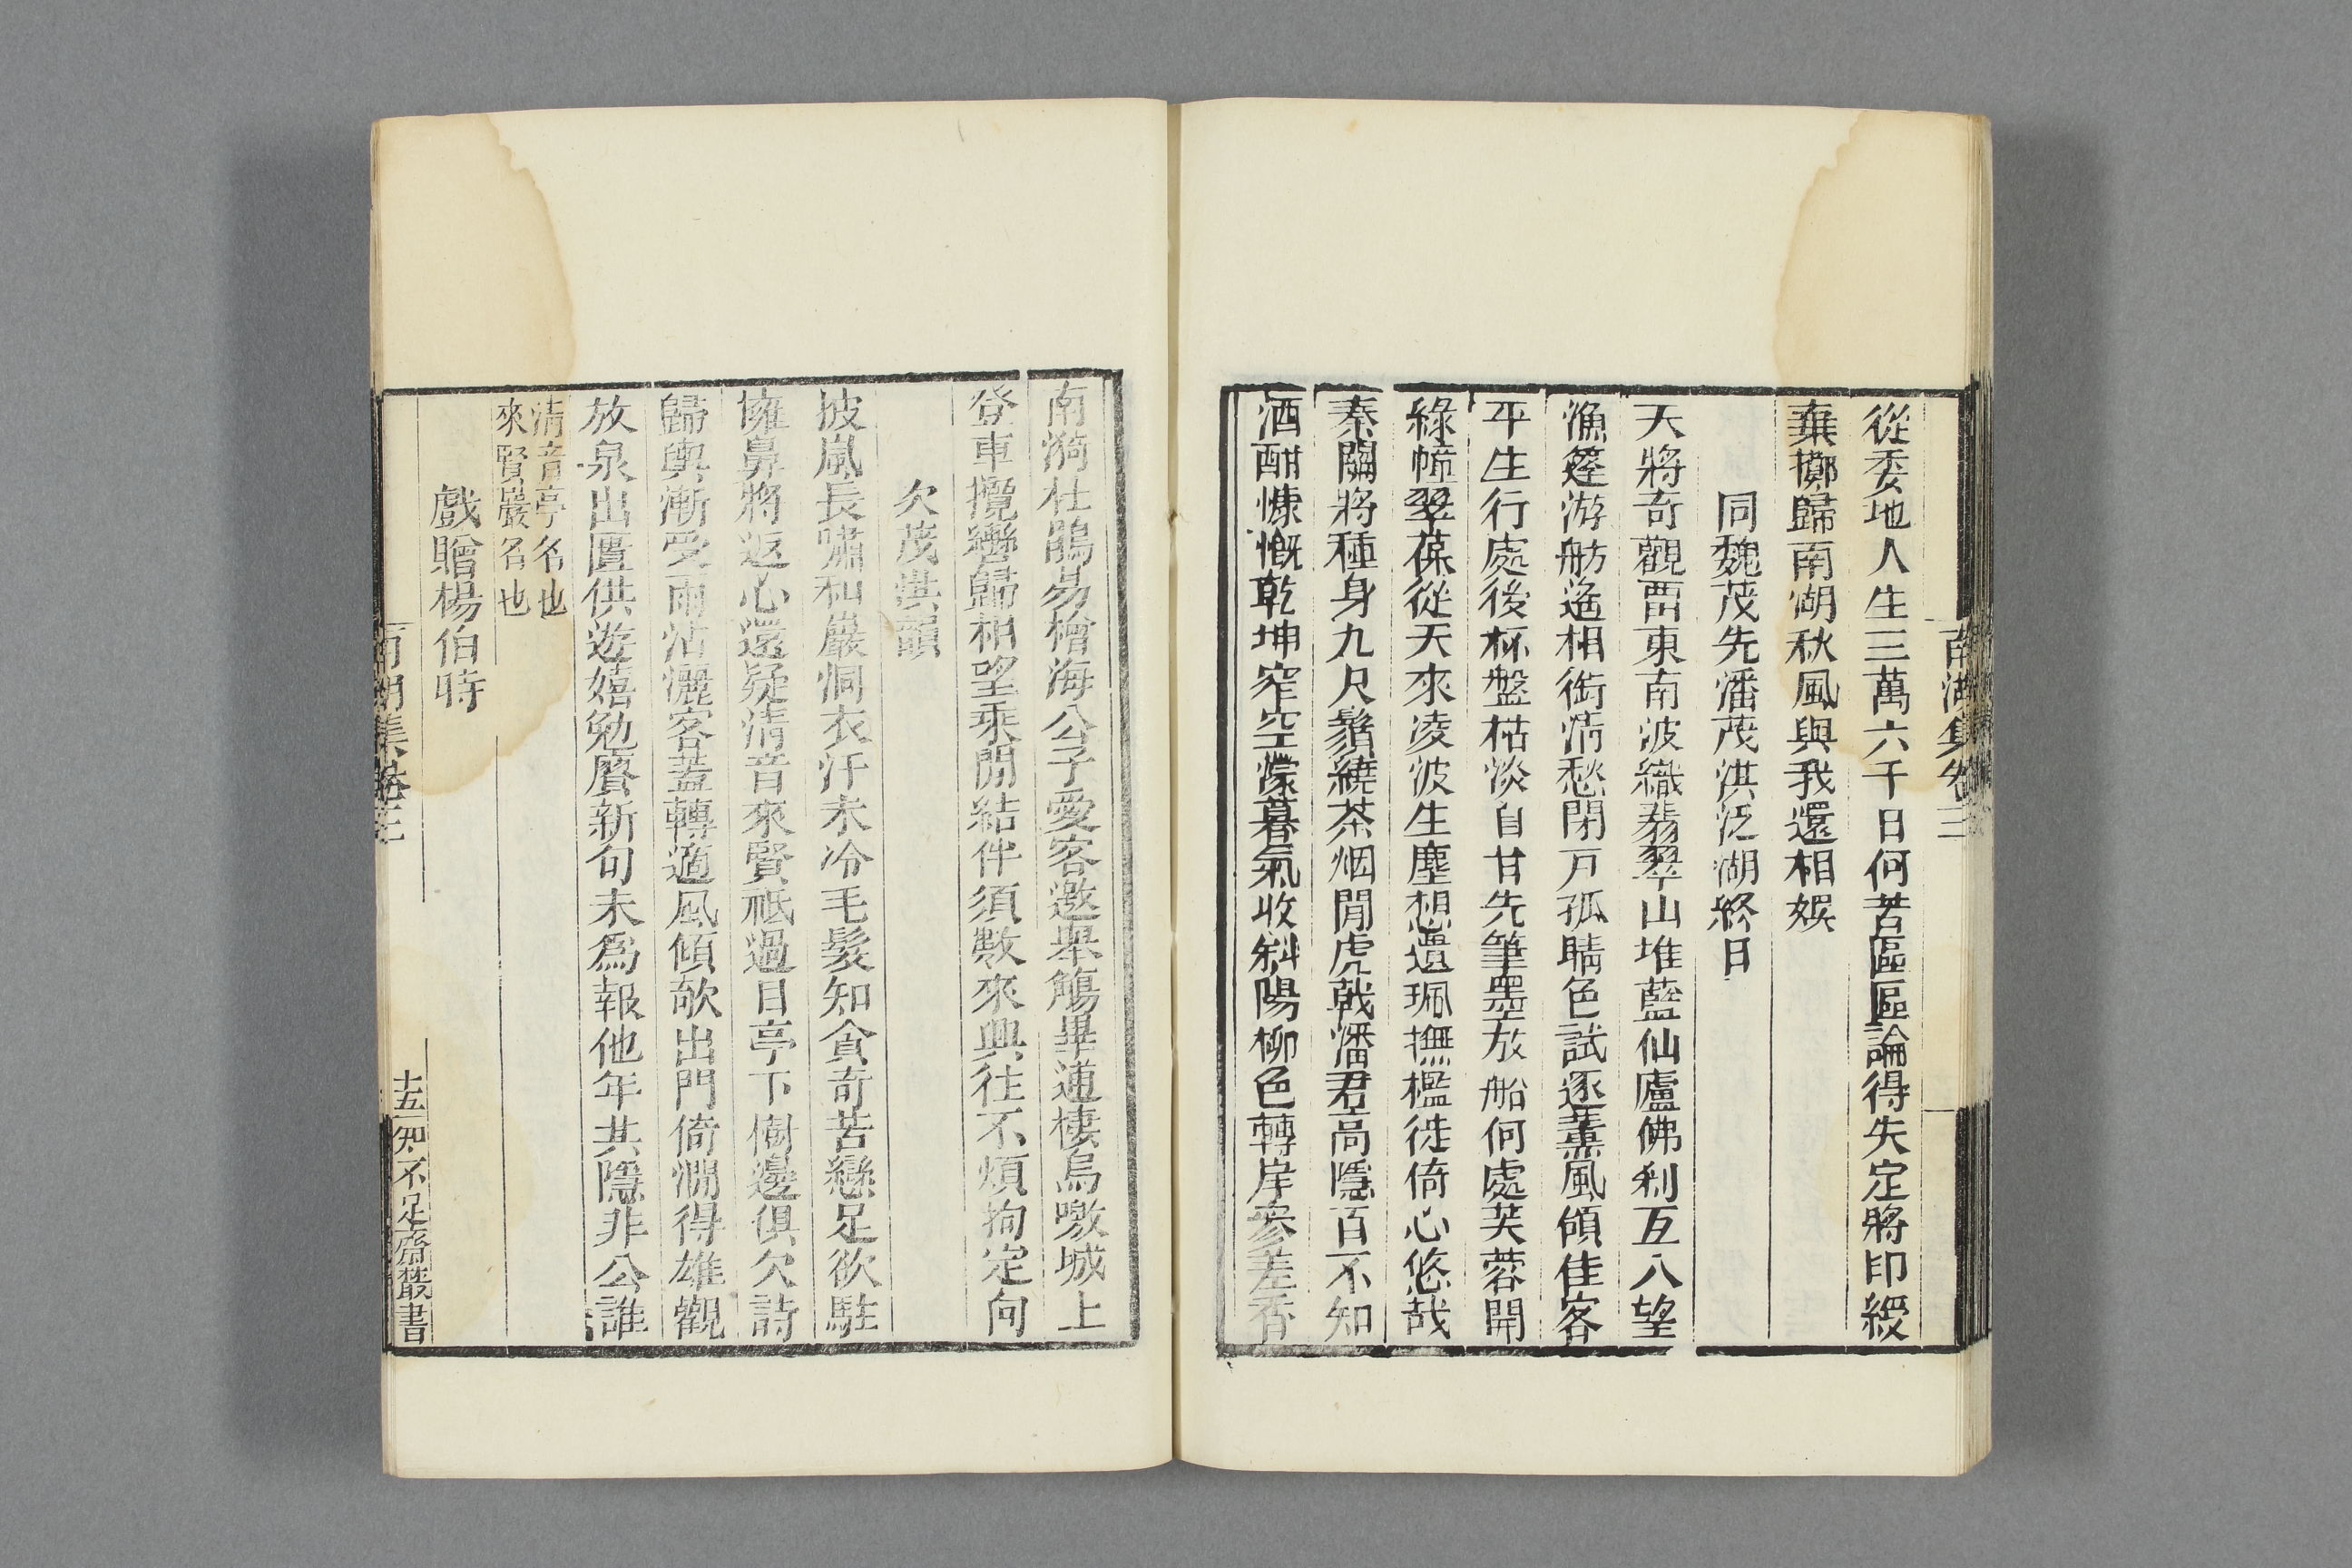 南湖集卷三
從委地人生三萬六千日何苦區區論得失定將印綬
棄擲歸南湖秋風與我還相娱
同魏茂先潘茂洪泛湖終日
天將奇觀西東南波織翡翠山堆藍仙廬佛刹互入望
漁篷游舫遙相銜清愁閉戸孤晴色試逐薰風傾佳客
平生行處後杯盤枯淡自甘先筆墨放船何處芙蓉開
綠幢翠葆從天來凌波生塵想遺珮撫檻徙倚心悠哉
秦關將種身九尺鬚繞茶烟閒虎戟潘君高隱百不知
酒酣慷慨乾坤窄空濛暮氣收斜陽柳色轉岸參差香
南漪杜鵑易檜海公子愛客邀舉觴畢逋棲烏噭城上
登車攬轡歸相望乘閒結伴須數來興往不煩拘定向
次茂洪韻
披嵐長嘯和巖洞衣汗未冷毛髮知貪奇苦戀足欲駐
擁鼻將返心還疑清音來賢祗過目亭下樹邊俱欠詩
歸輿漸受雨沾灑客蓋轉適風傾欹出門倚澗得雄觀
放泉出匱供遊嬉勉賡新句未爲報他年共隱非公誰
清音亭名也
來賢巖名也
戲贈楊伯時
南湖集卷三
十五
知不足齋叢書